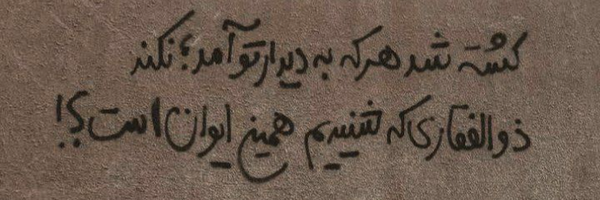 کشته شد هر که به دیدار تو آمد؛ نکند
ذوالفقاری که شنیدیم همین ایوان است؟!